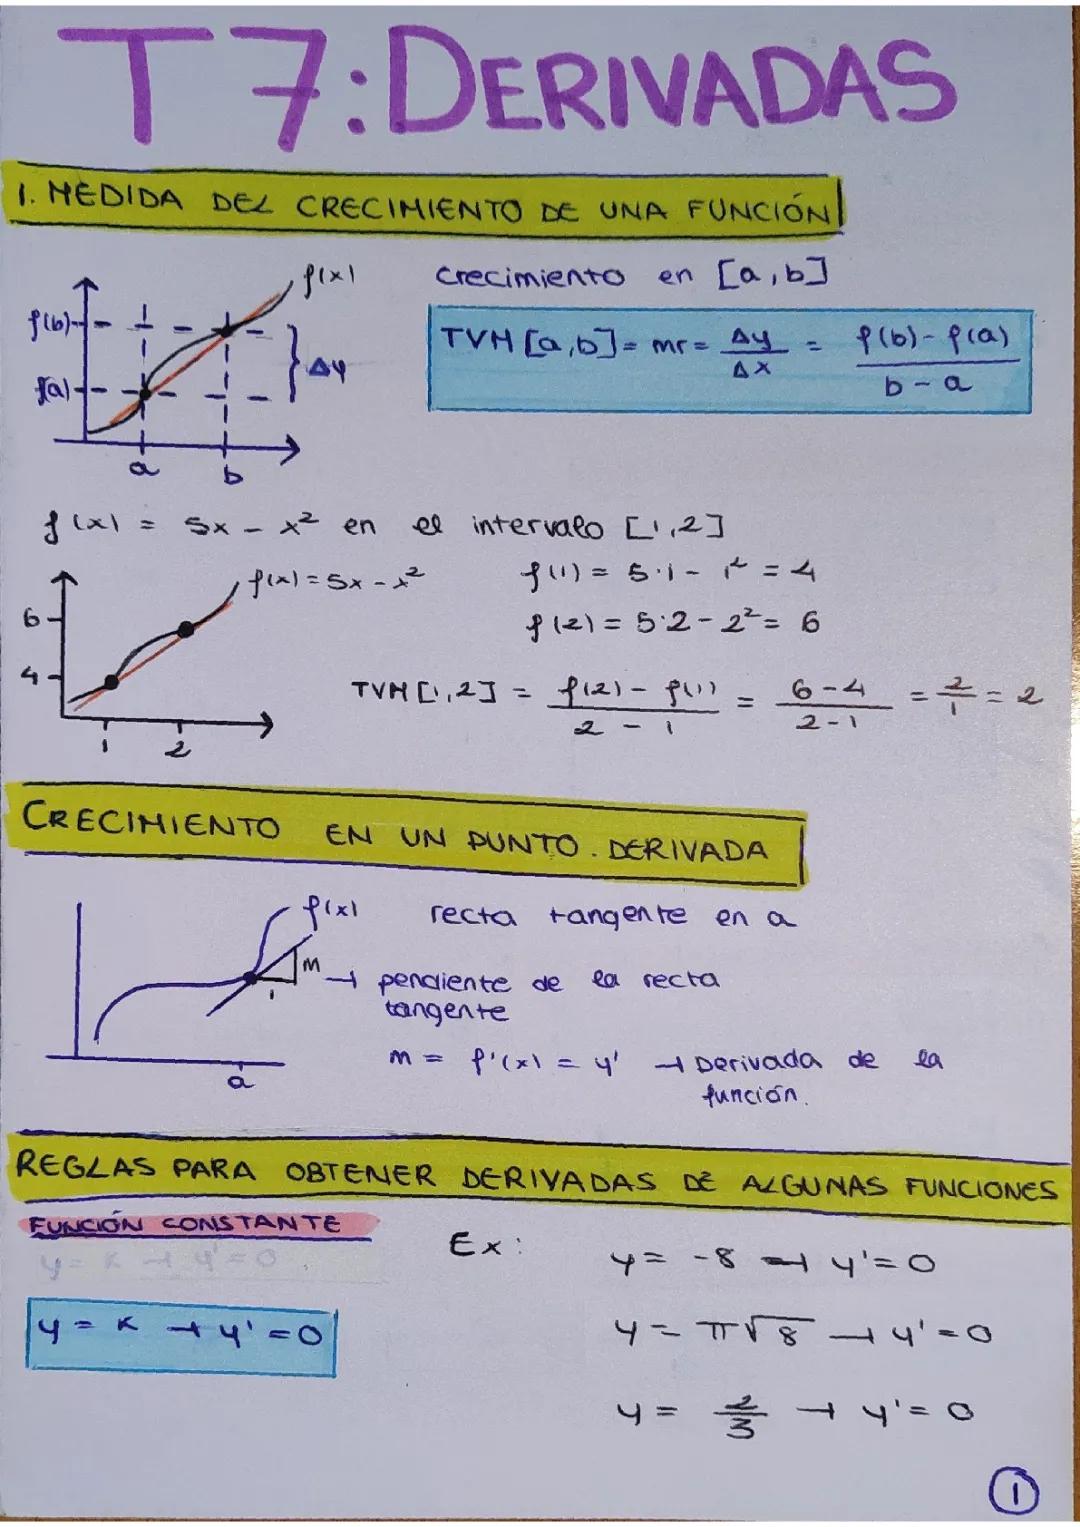 T7: DERIVADAS
1. MEDIDA DEL CRECIMIENTO DE UNA FUNCIÓN
f(x)
f(b)
f(a)
Δy
a
b
crecimiento en [a,b]
TVM [a,b] = mr = Δy/Δx = f(b) - f(a)/b - a
f(x) = 5x - x² en el intervalo [1,2]
f(x) = 5x - x²
6
4
1
2
f(1) = 5·1 - 1² = 4
f(2) = 5·2 - 2² = 6
TVM [1,2] = f(2) - f(1)/2 - 1 = 6-4/2-1 = 2/1 = 2
CRECIMIENTO EN UN PUNTO. DERIVADA
f(x)
m
1
a
recta tangente en a
→ pendiente de la recta
tangente
m = f'(x) = y' → Derivada de la
función.
REGLAS PARA OBTENER DERIVADAS DE ALGUNAS FUNCIONES
FUNCIÓN CONSTANTE
y = k → y' = 0
y = k → y' = 0
Ex:
y = -8 → y' = 0
y = π√8 → y' = 0
y = 2/3 → y' = 0
1